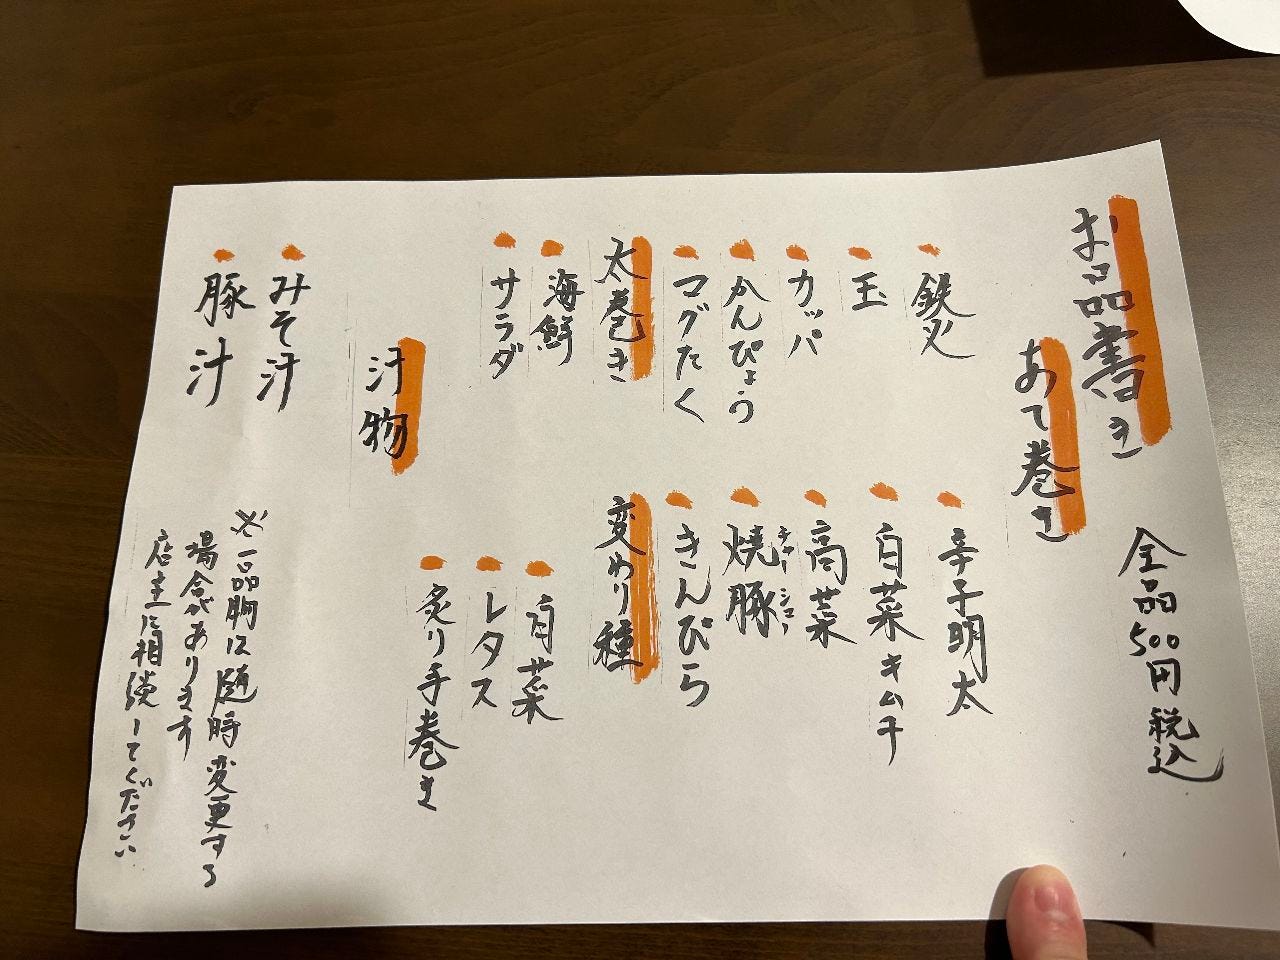 お品書き
全品500円税込
あて巻き
鉄火
玉
カッパ
かんぴょう
マグたく
辛子明太
白菜キムチ
高菜
焼豚
チャーシュー
きんぴら
太巻き
海鮮
サラダ
変わり種
白菜
レタス
炙り手巻き
汁物
みそ汁
豚汁
※一品物は随時変更する
場合があります
店主に相談してください